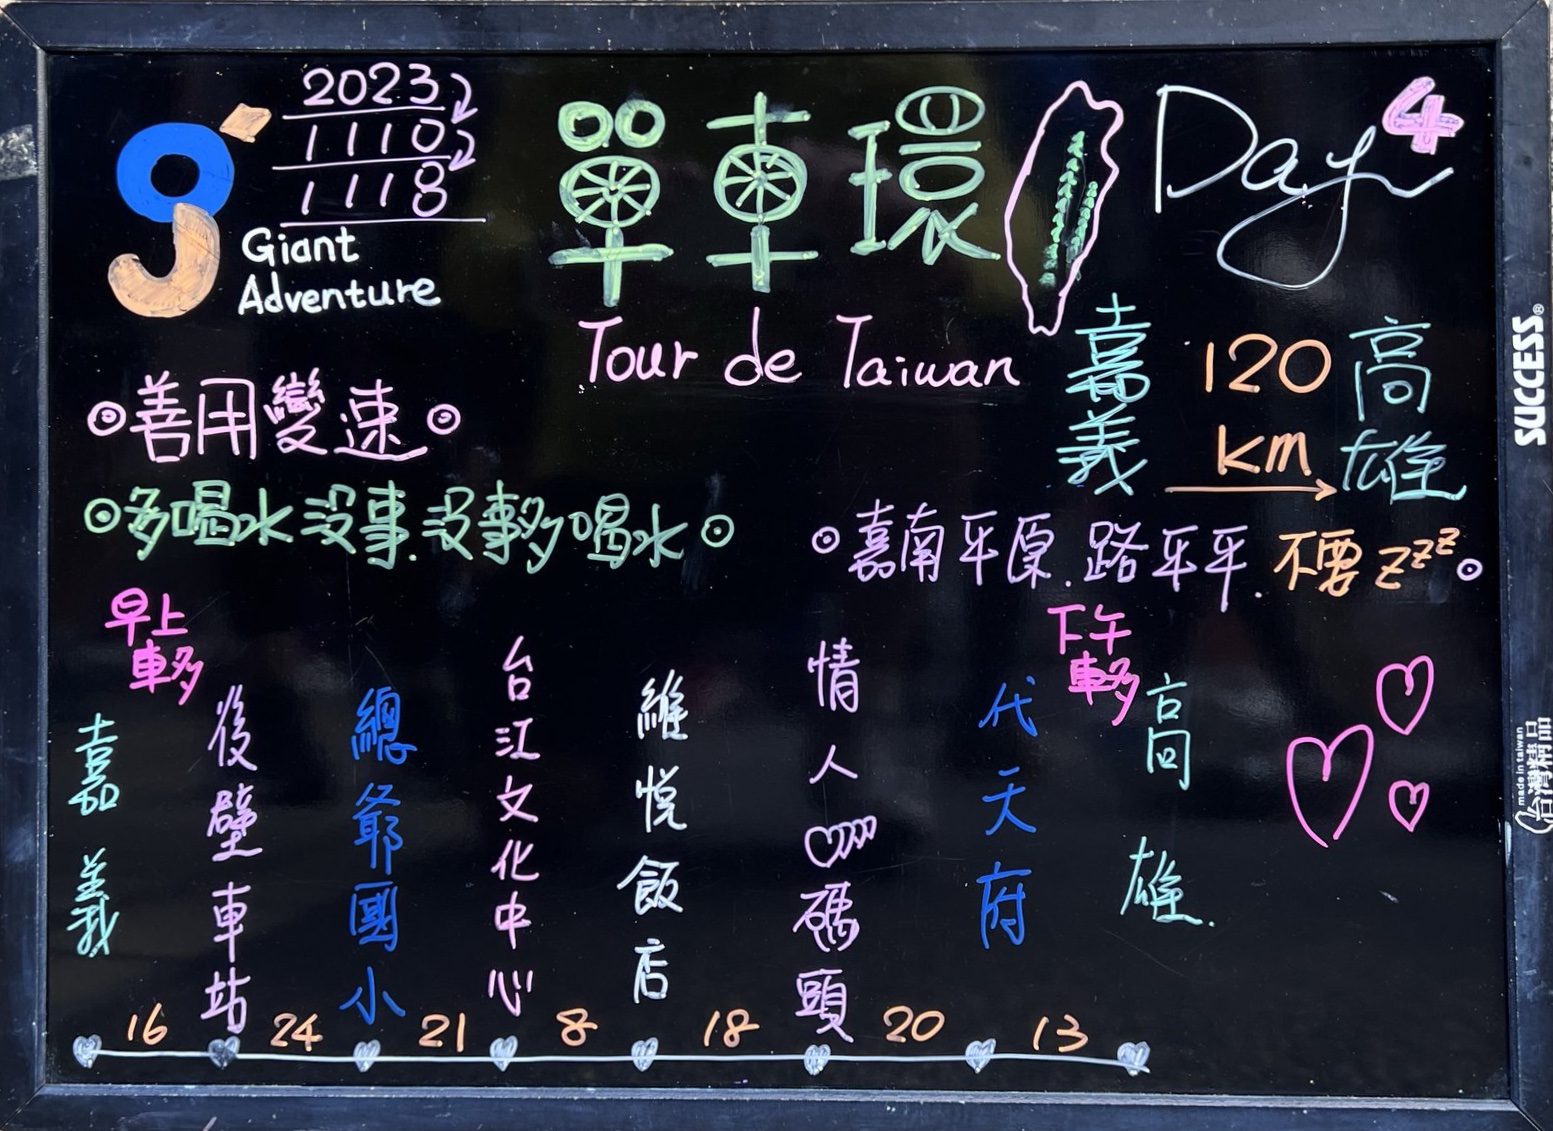 2023
1110
1118
Giant
Adventure
單車環
Day 4
Tour de Taiwan
嘉義
120
km
高雄
善用變速
多喝水沒事.沒事多喝水
嘉南平原.路平平.不要zzz
早上
車多
下午
車多
嘉義
後壁車站
總爺國小
台江文化中心
維悅飯店
情人碼頭
代天府
高雄.
16 24 21 8 18 20 13
SUCCESS®
made in taiwan
台灣精品